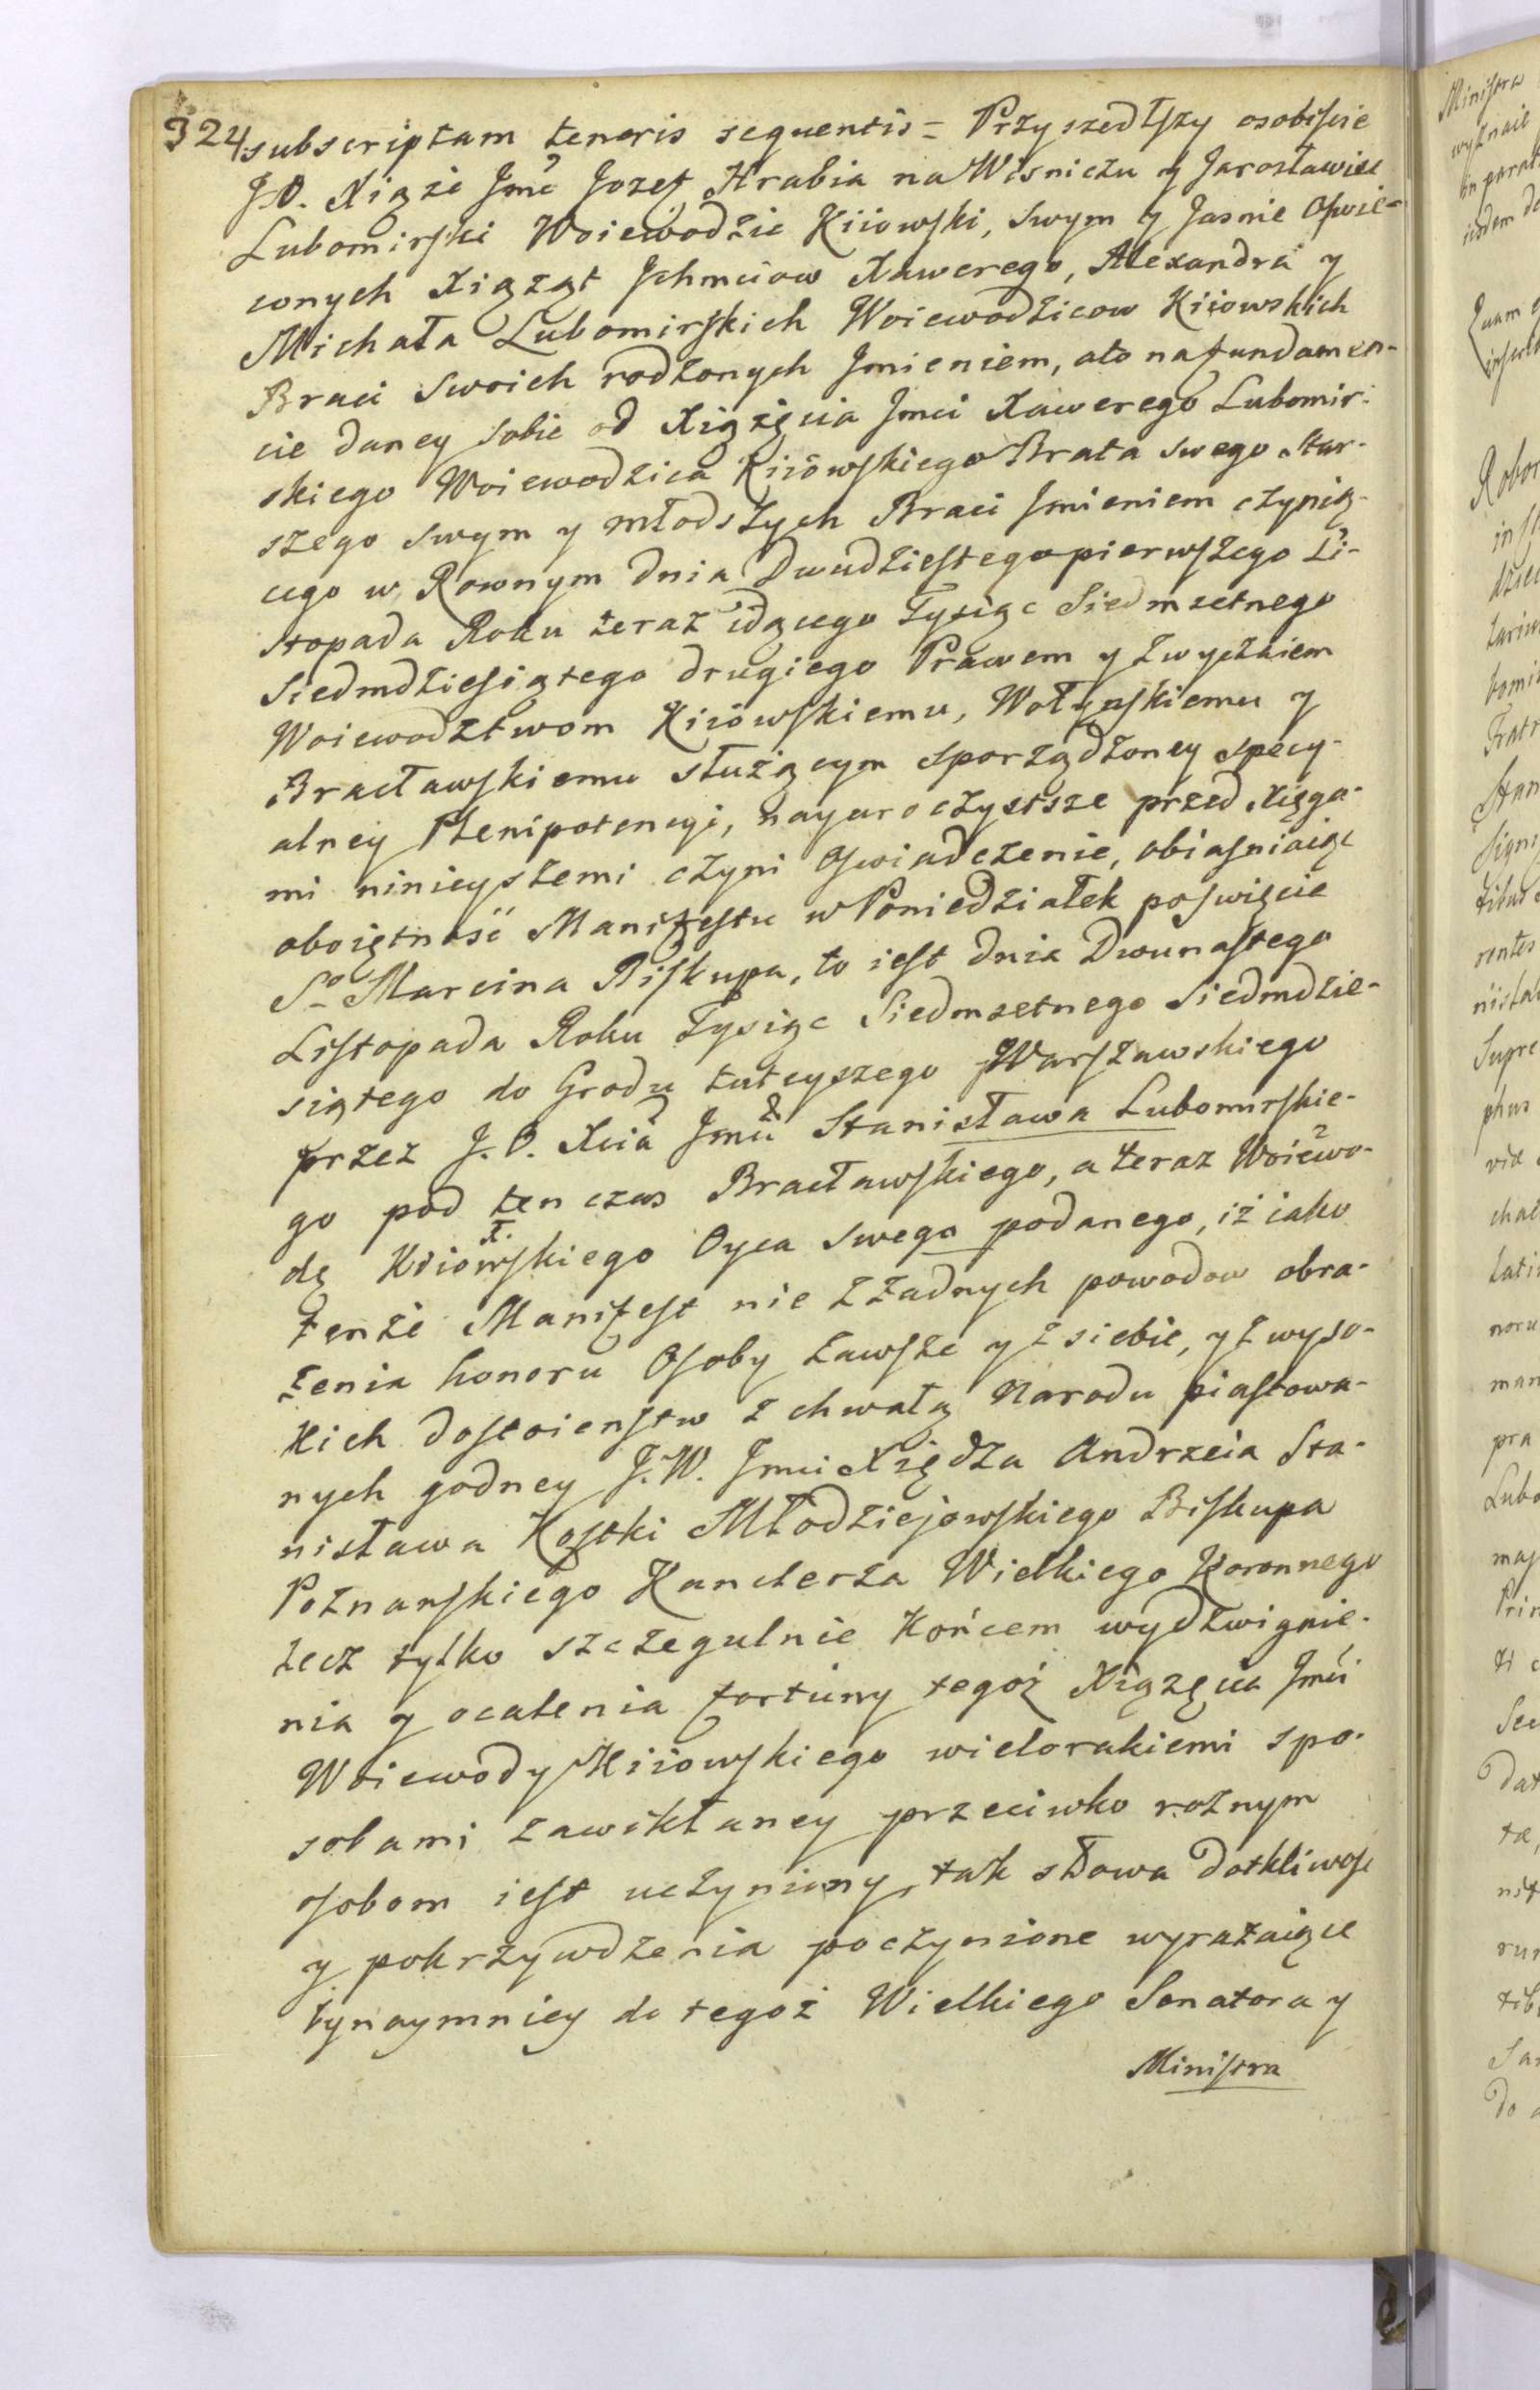 324 subscriptam tenoris sequentis = Przyszedłszy osobiście
J.O. Xiąże Jmć Jozef Hrabia na Wiśniczu y Jarosławiu
Lubomirski Woiewodzic Kiiowski, swym y Jasnie Oswie-
conych Xiążąt Jchmciow Xawerego, Alexandra y
Michała Lubomirskich Woiewodzicow Kiiowskich
Braci Swoich rodzonych Jmieniem, a to na fundamen-
cie daney sobie od Xiążęcia Jmci Xawerego Lubomir-
skiego Woiewodzica Kiiowskiego Brata swego star-
szego swym y młodszych Braci Jmieniem czynią-
cego w Rownym dnia Dwudziestego pierwszego Li-
stopada Roku teraz idącego Tysiąc Siedmsetnego
Siedmdziesiątego drugiego Prawem y zwyczaiem
Woiewodztwom Kiiowskiemu, Wołyńskiemu y
Bracławskiemu służącym sporządzoney specy-
alney Plenipotencyi, nayuroczystsze przed Xięga-
mi ninieyszemi czyni Oswiadczenie, obiasniaiąc
oboiętność Manifestu w Poniedziałek po swięcie
So Marcina Biskupa, to iest dnia Dwunastego
Listopada Roku Tysiąc Siedmsetnego Siedmdzie-
siątego do Grodu tuteyszego Warszawskiego
przez J.O. Xcia Jmci Stanisława Lubomirskie-
go pod ten czas Bracławskiego, a teraz Woiewo-
dę Kiiowskiego Oyca swego podanego, iż iako
tenże Manifest nie z żadnych powodow obra-
żenia honoru Osoby zawsze y z siebie, y z wyso-
kich dostoienstw z chwałą Narodu piastowa-
nych godney J.W. Jmci Xiędza Andrzeia Sta-
nisława Kostki Młodziejowskiego Biskupa
Poznanskiego Kanclerza Wielkiego Koronnego
lecz tylko szczegulnie końcem wydzwignie-
nia y ocalenia fortuny tegoż Xiążęcia Jmći
Woiewody Kiiowskiego wielorakiemi spo-
sobami zawikłaney przeciwko rożnym
osobom iest uczyniony, tak słowa dotkliwosc
y pokrzywdzenia poczynione wyrażaiące
bynaymniey do tegoż Wielkiego Senatora y
Ministra